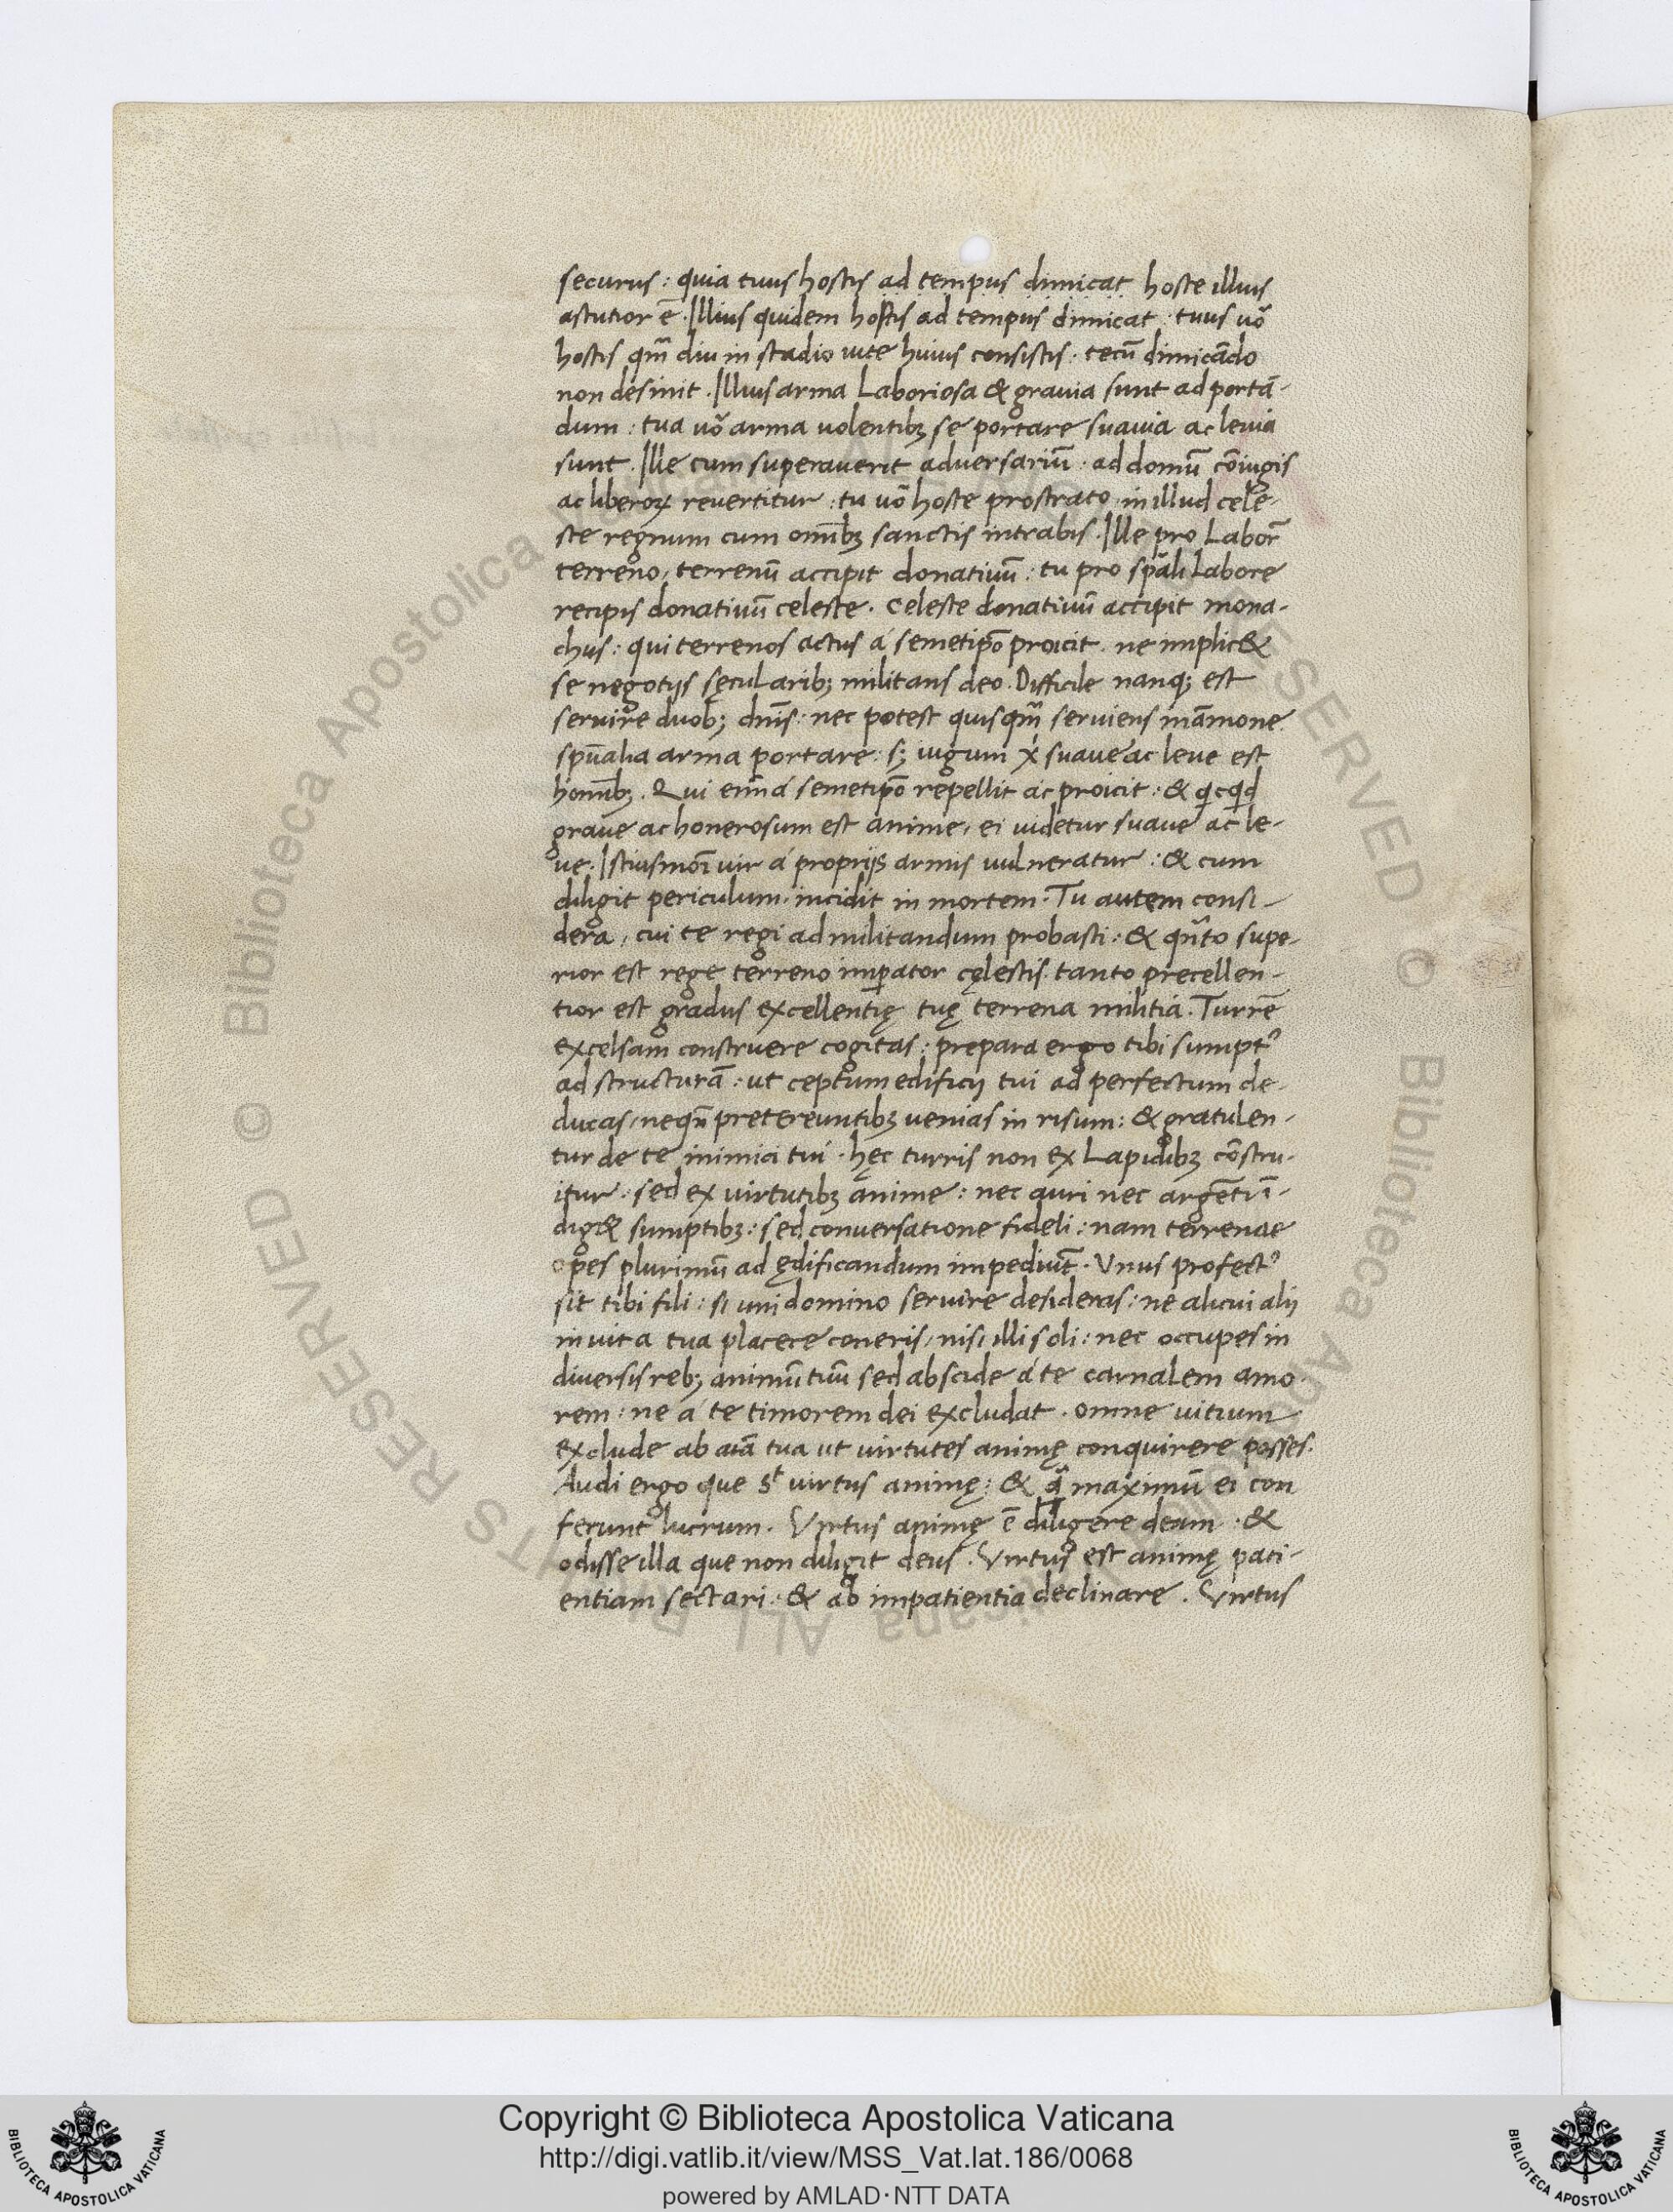 securus : quia tuus hostis ad tempus dimicat hoste illius
astutior ē . Illius quidem hostis ad tempus dimicat : tuus uō
hostis qm̄ diu in stadio uite huius consistis . tecū dimicādo
non desinit . Illius arma Laboriosa & grauia sunt ad portā-
dum : tua uō arma uolentibꝫ se portare suauia ac leuia
sunt . Ille cum superauerit aduersariū : ad domū cōiugis
ac liberoꝝ reuertitur : tu uō hoste prostrato in illud cele-
ste regnum cum om̄ibꝫ sanctis intrabis . Ille pro Labor̄
terreno, terrenū accipit donatiuū : tu pro sp̄ali Labore
recipis donatiuū celeste . Celeste donatiuū accipit mona-
chus : qui terrenos actus á semetip̄o proicit . ne implic&
se negotijs sęcularibꝫ militans deo . Difficile nanqꝫ est
seruire duobꝫ dn̄is : nec potest quisqm̄ seruiens māmone
spū̄alia arma portare : sꝫ iugum xp̄i suaue ac leue est
homībꝫ . Qui em̄ á semetip̄o repellit ac proicit : & qicqid
graue ac honerosum est anime, ei uidetur suaue ac le-
ue . Istiusmōi uir á proprijs armis uulneratur : & cum
diligit periculum, incidit in mortem . Tu autem consi-
dera, cui te regi ad militandum probasti : & qn̄to supe-
rior est rege terreno imperator cęlestis, tanto precellen-
tior est gradus excellentię tuę terrena militia . Turrē
excelsam construere cogitas : prepara ergo tibi sumptꝰ
ad structurā : ut ceptum edificij tui ad perfectum de-
ducas, neqn̄ pretereuntibꝫ uenias in risum : & gratulen-
tur de te inimici tui . hęc turris non ex Lapidibꝫ cōstru-
itur : sed ex uirtutibꝫ anime : nec auri nec argēti ī-
dig& sumptibꝫ : sed conuersatione fideli : nam terrenae
opes plurimū ad ędificandum impediūt . Vnus profectꝰ
sit tibi fili : si uni domino seruire desideras : ne alicui alij
in uita tua placere coneris, nisi illi soli : nec occupes in
diuersis rebꝫ animū tuū sed abscide á te carnalem amo-
rem : ne á te timorem dei excludat . omne uitium
exclude ab aīa tua ut uirtutes animę conquirere posses.
Audi ergo que st uirtus animę : & q̄ maximū ei con
ferunt lucrum . Virtus animę ē diligere deum . &
odisse illa que non diligit deus . Virtus est animę pati-
entiam sectari : & ab impatientia declinare . Virtus
Copyright © Biblioteca Apostolica Vaticana
http://digi.vatlib.it/view/MSS_Vat.lat.186/0068
powered by AMLAD·NTT DATA